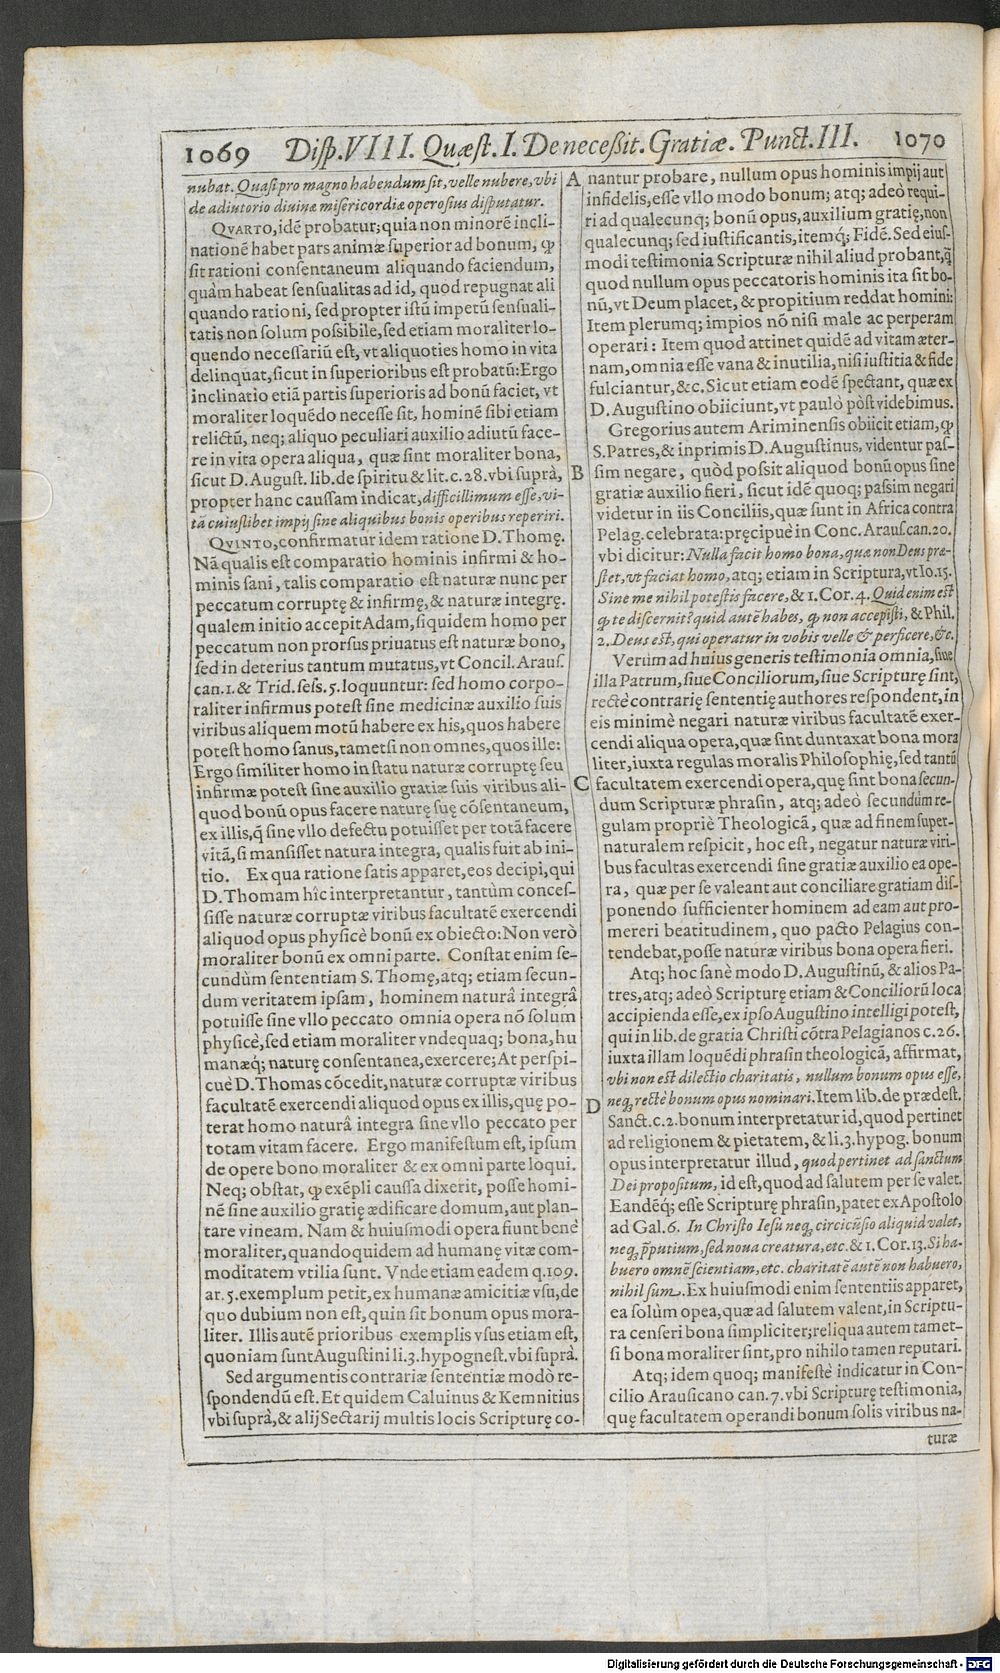 1069 Disp. VIII. Quæst. I. De necessit. Gratiæ. Punct. III. 1070
nubat. Quasi pro magno habendum sit, velle nubere, vbi
de adiutorio diuinæ misericordiæ operosius disputatur.
QVARTO, idē probatur; quia non minorē incli-
nationē habet pars animæ superior ad bonum, ꝙ
sit rationi consentaneum aliquando faciendum,
quàm habeat sensualitas ad id, quod repugnat ali
quando rationi, sed propter istū impetū sensuali-
tatis non solum possibile, sed etiam moraliter lo-
quendo necessariū est, vt aliquoties homo in vita
delinquat, sicut in superioribus est probatū: Ergo
inclinatio etiā partis superioris ad bonū faciet, vt
moraliter loquēdo necesse sit, hominē sibi etiam
relictū, neq; aliquo peculiari auxilio adiutū face-
re in vita opera aliqua, quæ sint moraliter bona,
sicut D. August. lib. de spiritu & lit. c. 28. vbi suprà,
propter hanc caussam indicat, difficillimum esse, vi-
tā cuiuslibet impij sine aliquibus bonis operibus reperiri.
QVINTO, confirmatur idem ratione D. Thomę.
Nā qualis est comparatio hominis infirmi & ho-
minis sani, talis comparatio est naturæ nunc per
peccatum corruptę & infirmę, & naturæ integrę.
qualem initio accepit Adam, siquidem homo per
peccatum non prorsus priuatus est naturæ bono,
sed in deterius tantum mutatus, vt Concil. Araus.
can. 1. & Trid. sess. 5. loquuntur: sed homo corpo-
raliter infirmus potest sine medicinæ auxilio suis
viribus aliquem motū habere ex his, quos habere
potest homo sanus, tametsi non omnes, quos ille:
Ergo similiter homo in statu naturæ corruptę seu
infirmæ potest sine auxilio gratiæ suis viribus ali-
quod bonū opus facere naturę suę cōsentaneum,
ex illis, q̄ sine vllo defectu potuisset per totā facere
vitā, si mansisset natura integra, qualis fuit ab ini-
tio. Ex qua ratione satis apparet, eos decipi, qui
D. Thomam hîc interpretantur, tantùm conces-
sisse naturæ corruptæ viribus facultatē exercendi
aliquod opus physicè bonū ex obiecto: Non verò
moraliter bonū ex omni parte. Constat enim se-
cundùm sententiam S. Thomę, atq; etiam secun-
dum veritatem ipsam, hominem naturâ integrâ
potuisse sine vllo peccato omnia opera nō solum
physicè, sed etiam moraliter vndequaq; bona, hu
manæq́; naturę consentanea, exercere; At perspi-
cuè D. Thomas cōcedit, naturæ corruptæ viribus
facultatē exercendi aliquod opus ex illis, quę po-
terat homo naturâ integra sine vllo peccato per
totam vitam facere. Ergo manifestum est, ipsum
de opere bono moraliter & ex omni parte loqui.
Neq; obstat, ꝙ exēpli caussa dixerit, posse homi-
nē sine auxilio gratię ædificare domum, aut plan-
tare vineam. Nam & huiusmodi opera fiunt benè
moraliter, quandoquidem ad humanę vitæ com-
moditatem vtilia sunt. Vnde etiam eadem q. 109.
ar. 5. exemplum petit, ex humanæ amicitiæ vsu, de
quo dubium non est, quin sit bonum opus mora-
liter. Illis autē prioribus exemplis vsus etiam est,
quoniam sunt Augustini li. 3. hypognest. vbi suprà.
Sed argumentis contrariæ sententiæ modò re-
spondendū est. Et quidem Caluinus & Kemnitius
vbi suprà, & alij Sectarij multis locis Scripturę co-
A
B
C
D
nantur probare, nullum opus hominis impij aut
infidelis, esse vllo modo bonum; atq; adeò requi-
ri ad qualecunq; bonū opus, auxilium gratię, non
qualecunq; sed iustificantis, itemq́; Fidē. Sed eius-
modi testimonia Scripturæ nihil aliud probant, q̄
quod nullum opus peccatoris hominis ita sit bo-
nū, vt Deum placet, & propitium reddat homini:
Item plerumq; impios nō nisi male ac perperam
operari: Item quod attinet quidē ad vitam æter-
nam, omnia esse vana & inutilia, nisi iustitia & fide
fulciantur, &c. Sicut etiam eodē spectant, quæ ex
D. Augustino obiiciunt, vt paulò pòst videbimus.
Gregorius autem Ariminensis obiicit etiam, ꝙ
S. Patres, & inprimis D. Augustinus, videntur pas-
sim negare, quòd possit aliquod bonū opus sine
gratiæ auxilio fieri, sicut idē quoq; passim negari
videtur in iis Conciliis, quæ sunt in Africa contra
Pelag. celebrata: pręcipuè in Conc. Araus. can. 20.
vbi dicitur: Nulla facit homo bona, quæ non Deus præ-
stet, vt faciat homo, atq; etiam in Scriptura, vt Io. 15.
Sine me nihil potestis facere, & 1. Cor. 4. Quid enim est
ꝙ te discernit? quid autē habes, ꝙ non accepisti, & Phil.
2. Deus est, qui operatur in vobis velle & perficere, &c.
Verùm ad huius generis testimonia omnia, siue
illa Patrum, siue Conciliorum, siue Scripturę sint,
rectè contrarię sententię authores respondent, in
eis minimè negari naturæ viribus facultatē exer-
cendi aliqua opera, quæ sint duntaxat bona mora
liter, iuxta regulas moralis Philosophię, sed tantū
facultatem exercendi opera, quę sint bona secun-
dum Scripturæ phrasin, atq; adeò secundùm re-
gulam propriè Theologicā, quæ ad finem super-
naturalem respicit, hoc est, negatur naturæ viri-
bus facultas exercendi sine gratiæ auxilio ea ope-
ra, quæ per se valeant aut conciliare gratiam dis-
ponendo sufficienter hominem ad eam aut pro-
mereri beatitudinem, quo pacto Pelagius con-
tendebat, posse naturæ viribus bona opera fieri.
Atq; hoc sanè modo D. Augustinū, & alios Pa-
tres, atq; adeò Scripturę etiam & Conciliorū loca
accipienda esse, ex ipso Augustino intelligi potest,
qui in lib. de gratia Christi cōtra Pelagianos c. 26.
iuxta illam loquēdi phrasin theologicā, affirmat,
vbi non est dilectio charitatis, nullum bonum opus esse,
neq, rectè bonum opus nominari. Item lib. de prædest.
Sanct. c. 2. bonum interpretatur id, quod pertinet
ad religionem & pietatem, & li. 3. hypog. bonum
opus interpretatur illud, quod pertinet ad sanctum
Dei propositum, id est, quod ad salutem per se valet.
Eandēq; esse Scripturę phrasin, patet ex Apostolo
ad Gal. 6. In Christo Iesu neq, circūcisio aliquid valet,
neq, p̄putium, sed noua creatura, etc. & 1. Cor. 13. Si ha-
buero omnē scientiam, etc. charitatē autē non habuero,
nihil sum. Ex huiusmodi enim sententiis apparet,
ea solùm opea, quæ ad salutem valent, in Scriptu-
ra censeri bona simpliciter; reliqua autem tamet-
si bona moraliter sint, pro nihilo tamen reputari.
Atq; idem quoq; manifestè indicatur in Con-
cilio Arausicano can. 7. vbi Scripturę testimonia,
quę facultatem operandi bonum solis viribus na-
turæ
Digitalisierung gefördert durch die Deutsche Forschungsgemeinschaft - DFG